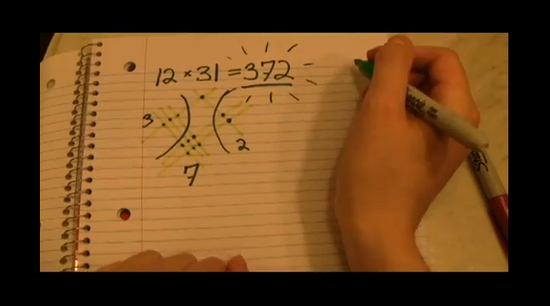 12 × 31 = 372
3
2
7